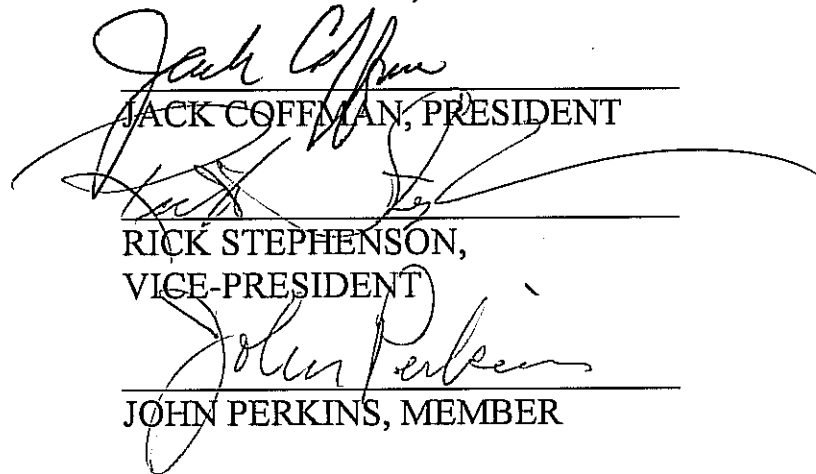 Jack Coffman
JACK COFFMAN, PRESIDENT
RICK STEPHENSON,
VICE-PRESIDENT
John Perkins
JOHN PERKINS, MEMBER